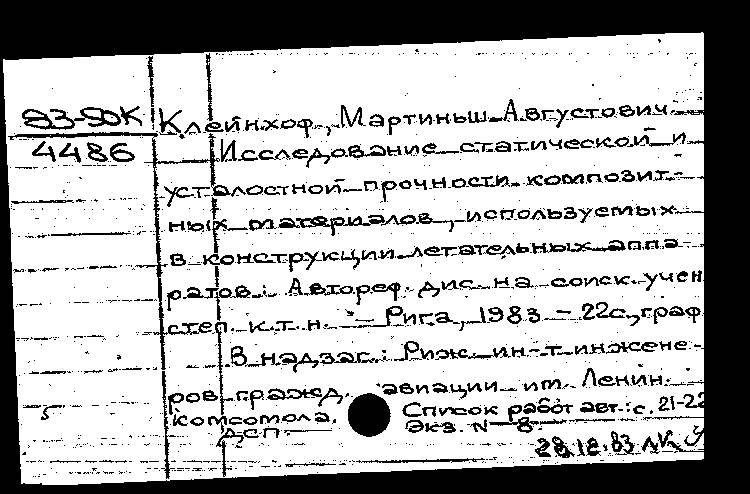 83-80К Клейнхоф, Мартиньш Августович
4486 Исследование статической и
усталостной прочности композит-
ных материалов, используемых
в конструкции летательных аппа
ратов: Автореф. дис. на соиск. учен
степ. к.т.н. - Рига, 1983 - 22с., граф
В надзаг.: Риж. ин-т инжене-
ров гражд. авиации им. Ленин.
комсомола. Список работ авт.: с. 21-22
ДСП. Экз. N 8.
28.12.83 ЛК